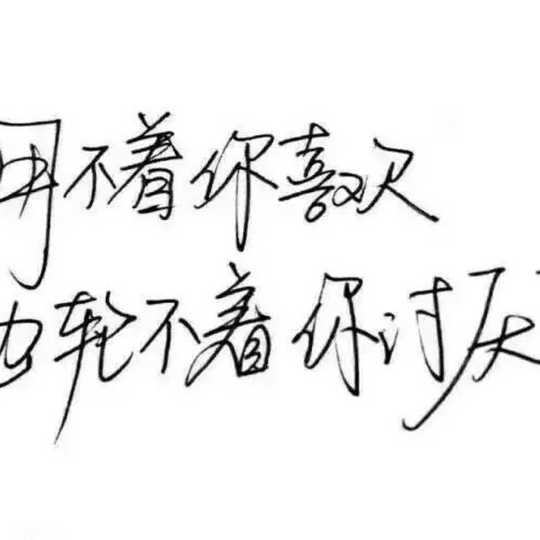 用不着你喜欢
也轮不着你讨厌